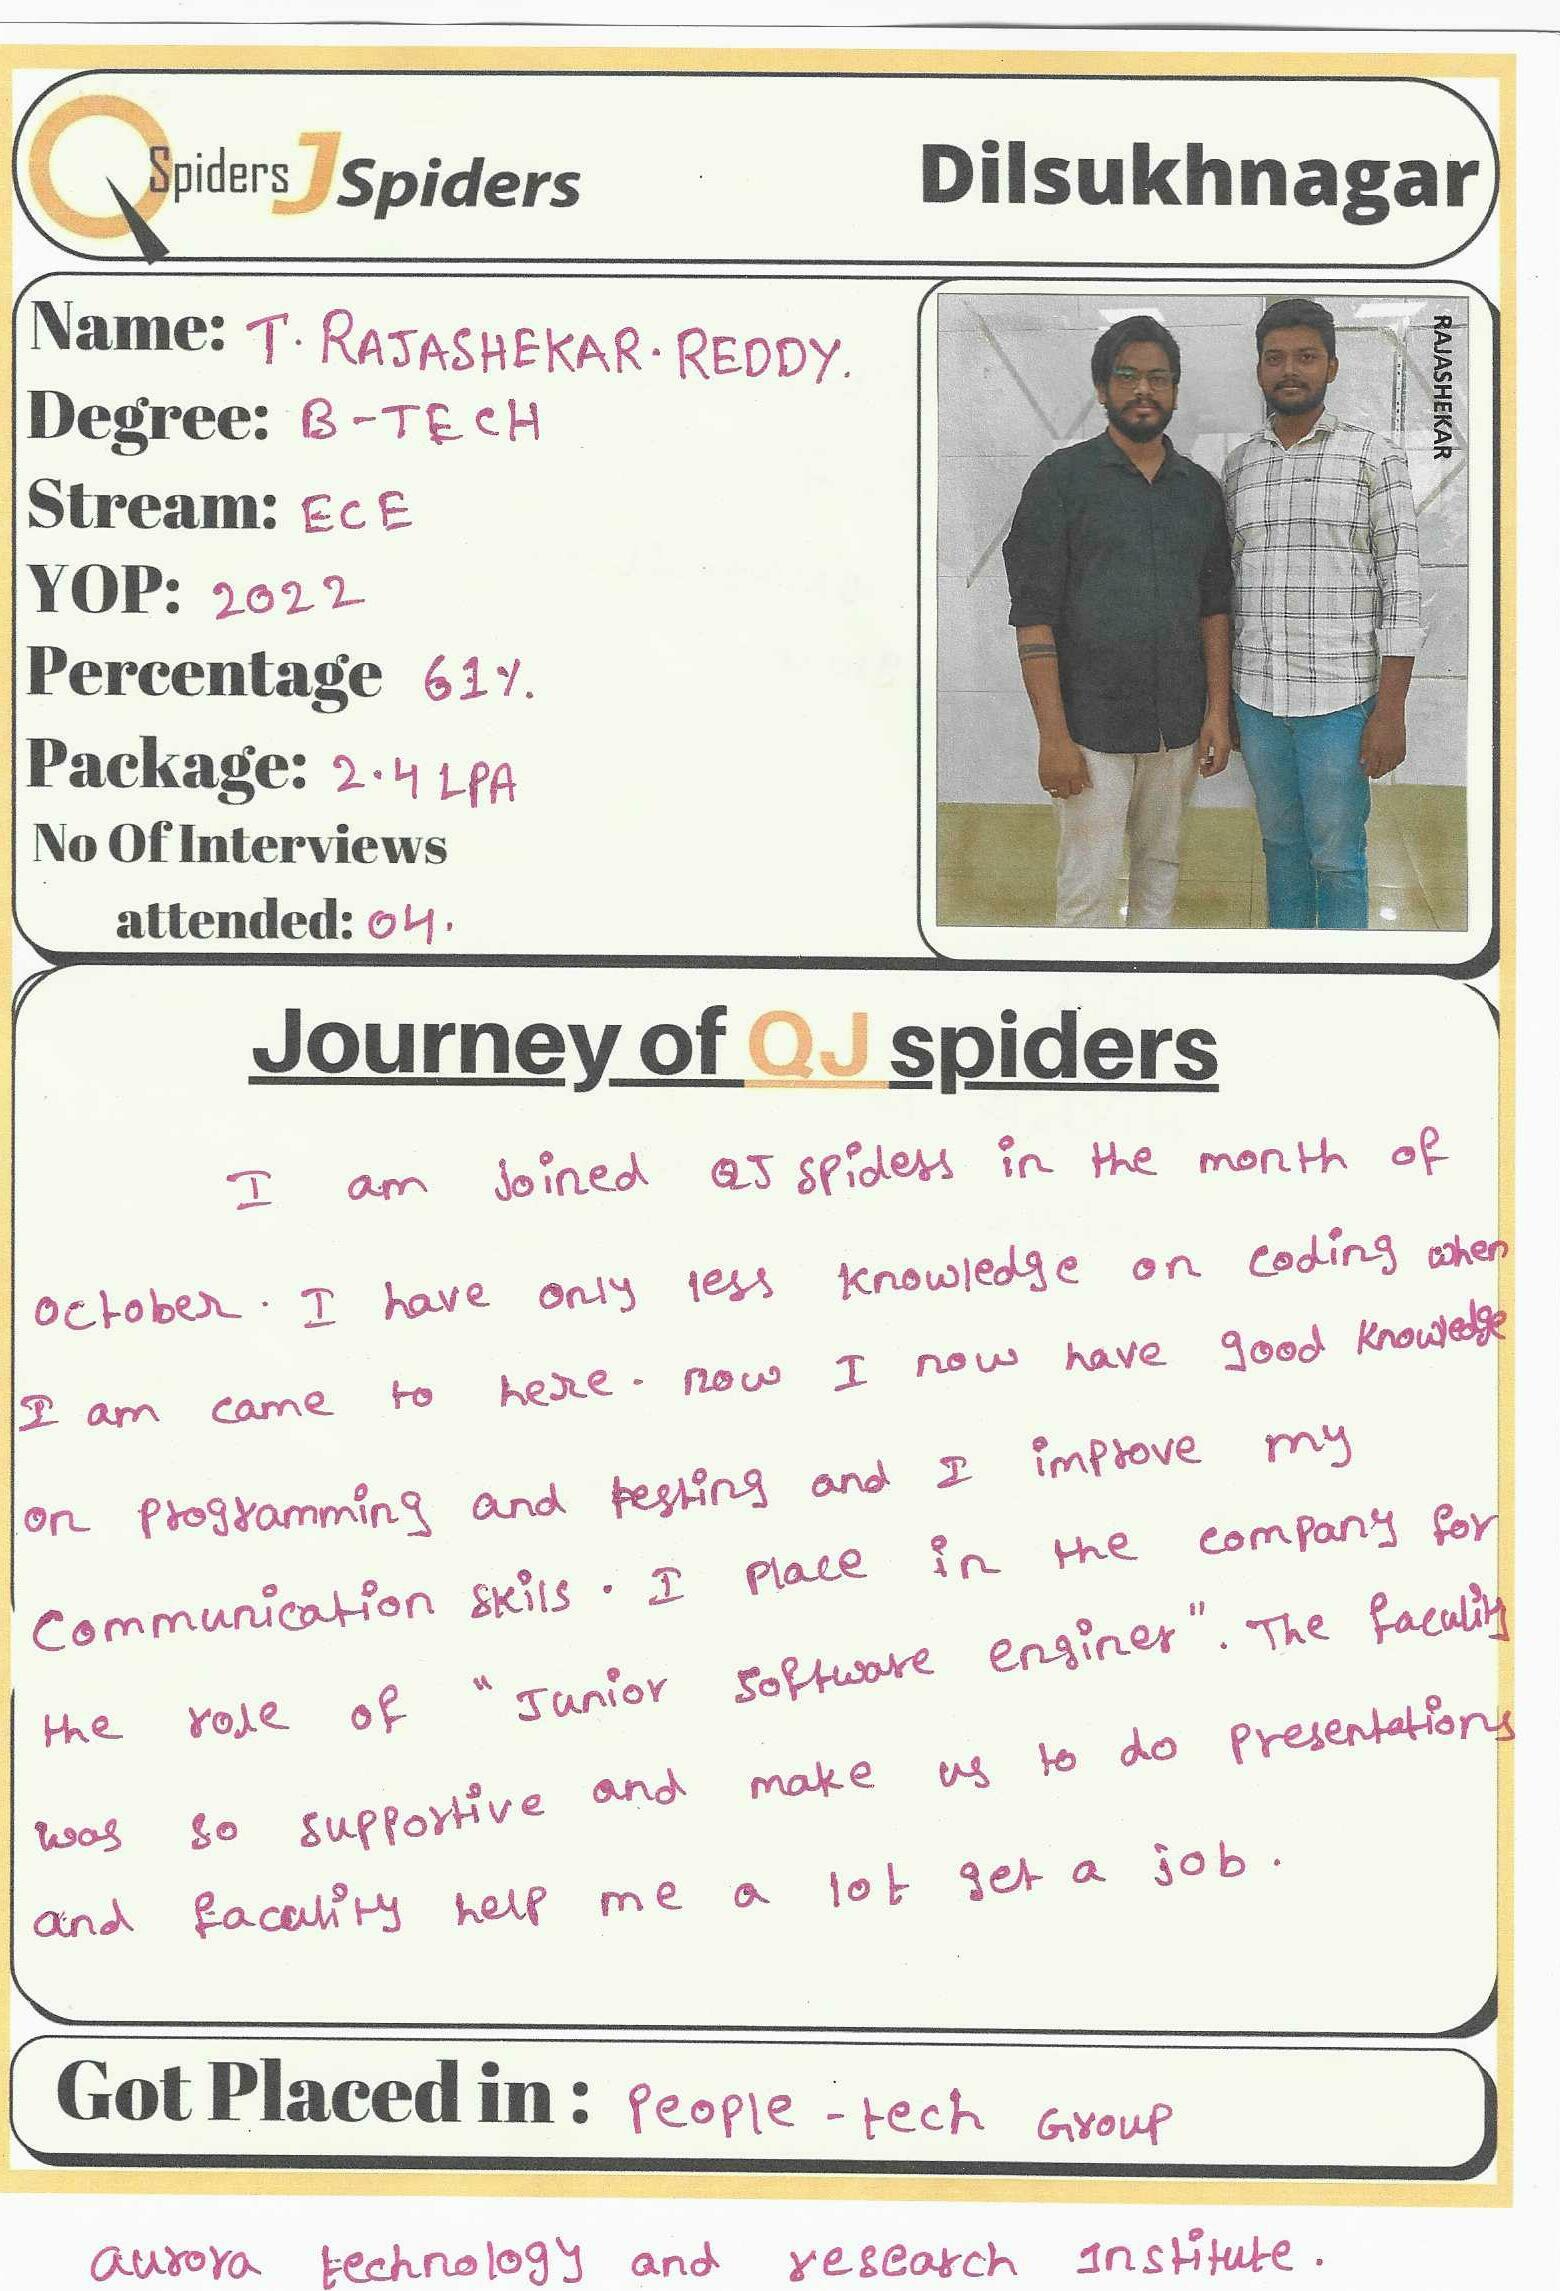 QSpiders JSpiders Dilsukhnagar
Name: T. RAJASHEKAR. REDDY.
Degree: B-TECH
Stream: ECE
YOP: 2022
Percentage 61%.
Package: 2.4 LPA
No Of Interviews
attended: 04.
RAJASHEKAR
Journey of QJ spiders
I am joined QJ spiders in the month of
october. I have only less knowledge on coding when
I am came to here. now I now have good knowledge
on programming and testing and I improve my
Communication skils. I place in the company for
the role of "Junior software enginer". The faculity
was so supportive and make us to do presentations
and faculity help me a lot get a job.
Got Placed in : People-tech Group
aurora technology and research institute.